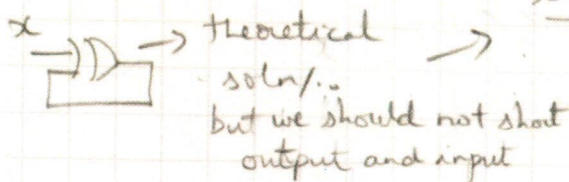 x
theoretical
soln/..
but we should not short
output and input